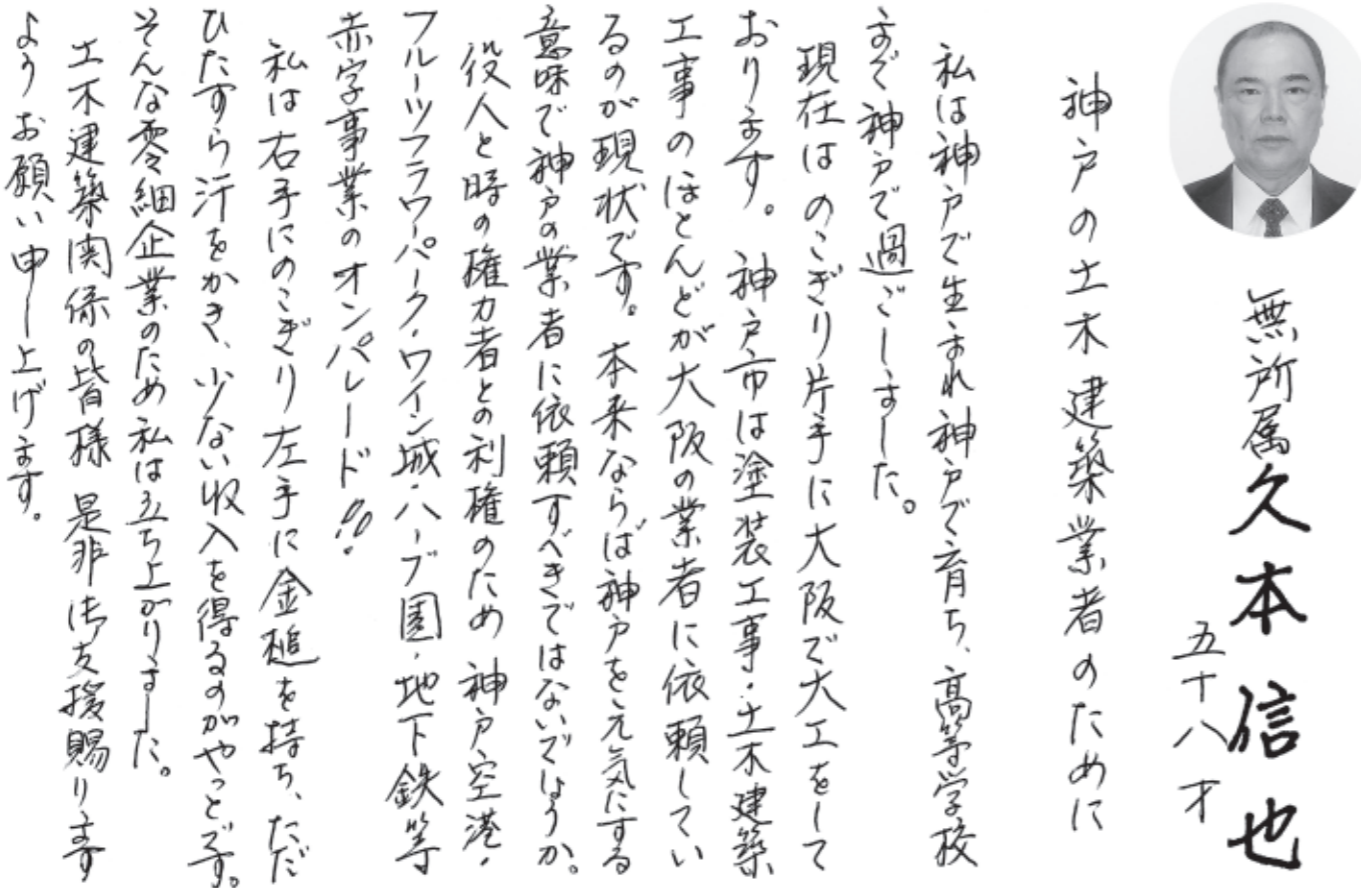 無所属 久本信也
五十八才
神戸の土木建築業者のために
私は神戸で生まれ神戸で育ち、高等学校
まで神戸で過ごしました。
現在はのこぎり片手に大阪で大工をして
おります。神戸市は塗装工事・土木建築
工事のほとんどが大阪の業者に依頼してい
るのが現状です。本来ならば神戸を元気にする
意味で神戸の業者に依頼すべきではないでしょうか。
役人と時の権力者との利権のため神戸空港・
フルーツフラワーパーク・ワイン城・ハーブ園・地下鉄等
赤字事業のオンパレード!!
私は右手にのこぎり左手に金槌を持ち、ただ
ひたすら汗をかき、少ない収入を得るのがやっとです。
そんな零細企業のため私は立ち上がりました。
土木建築関係の皆様 是非御支援賜ります
ようお願い申し上げます。